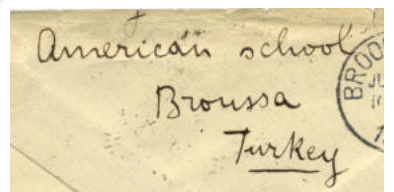 American school
Broussa
Turkey